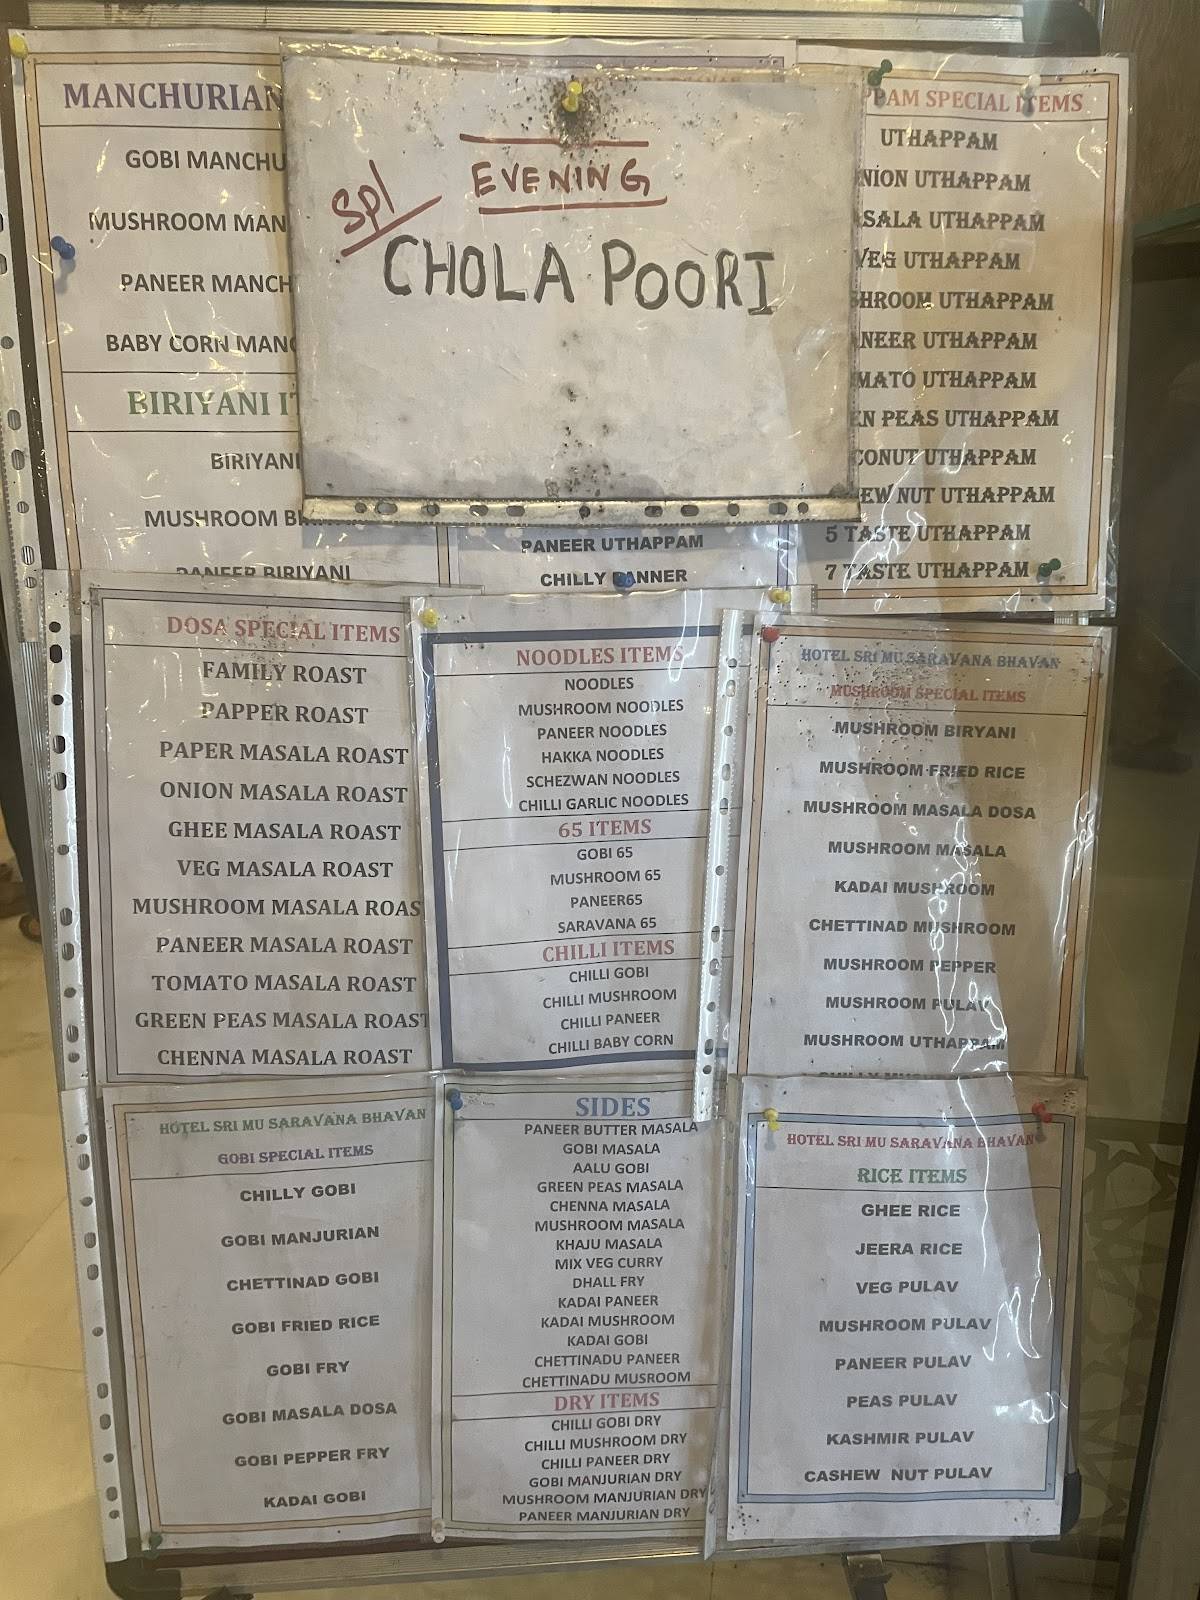 MANCHURIAN
GOBI MANCHU
MUSHROOM MAN
PANEER MANCH
BABY CORN MAN
BIRIYANI
BIRIYANI
MUSHROOM
PANEER BIRIYANI
Spl
EVENING
CHOLA POORI
PANEER UTHAPPAM
CHILLY PANNER
PPAM SPECIAL ITEMS
UTHAPPAM
NION UTHAPPAM
ASALA UTHAPPAM
VEG UTHAPPAM
SHROOM UTHAPPAM
ANEER UTHAPPAM
MATO UTHAPPAM
EN PEAS UTHAPPAM
CONUT UTHAPPAM
EW NUT UTHAPPAM
5 TASTE UTHAPPAM
7 TASTE UTHAPPAM
DOSA SPECIAL ITEMS
FAMILY ROAST
PAPPER ROAST
PAPER MASALA ROAST
ONION MASALA ROAST
GHEE MASALA ROAST
VEG MASALA ROAST
MUSHROOM MASALA ROAS
PANEER MASALA ROAST
TOMATO MASALA ROAST
GREEN PEAS MASALA ROAST
CHENNA MASALA ROAST
NOODLES ITEMS
NOODLES
MUSHROOM NOODLES
PANEER NOODLES
HAKKA NOODLES
SCHEZWAN NOODLES
CHILLI GARLIC NOODLES
65 ITEMS
GOBI 65
MUSHROOM 65
PANEER65
SARAVANA 65
CHILLI ITEMS
CHILLI GOBI
CHILLI MUSHROOM
CHILLI PANEER
CHILLI BABY CORN
HOTEL SRI MU SARAVANA BHAVAN
MUSHROOM SPECIAL ITEMS
MUSHROOM BIRYANI
MUSHROOM FRIED RICE
MUSHROOM MASALA DOSA
MUSHROOM MASALA
KADAI MUSHROOM
CHETTINAD MUSHROOM
MUSHROOM PEPPER
MUSHROOM PULAV
MUSHROOM UTHAPPAM
HOTEL SRI MU SARAVANA BHAVAN
GOBI SPECIAL ITEMS
CHILLY GOBI
GOBI MANJURIAN
CHETTINAD GOBI
GOBI FRIED RICE
GOBI FRY
GOBI MASALA DOSA
GOBI PEPPER FRY
KADAI GOBI
SIDES
PANEER BUTTER MASALA
GOBI MASALA
AALU GOBI
GREEN PEAS MASALA
CHENNA MASALA
MUSHROOM MASALA
KHAJU MASALA
MIX VEG CURRY
DHALL FRY
KADAI PANEER
KADAI MUSHROOM
KADAI GOBI
CHETTINADU PANEER
CHETTINADU MUSROOM
DRY ITEMS
CHILLI GOBI DRY
CHILLI MUSHROOM DRY
CHILLI PANEER DRY
GOBI MANJURIAN DRY
MUSHROOM MANJURIAN DRY
PANEER MANJURIAN DRY
HOTEL SRI MU SARAVANA BHAVAN
RICE ITEMS
GHEE RICE
JEERA RICE
VEG PULAV
MUSHROOM PULAV
PANEER PULAV
PEAS PULAV
KASHMIR PULAV
CASHEW NUT PULAV